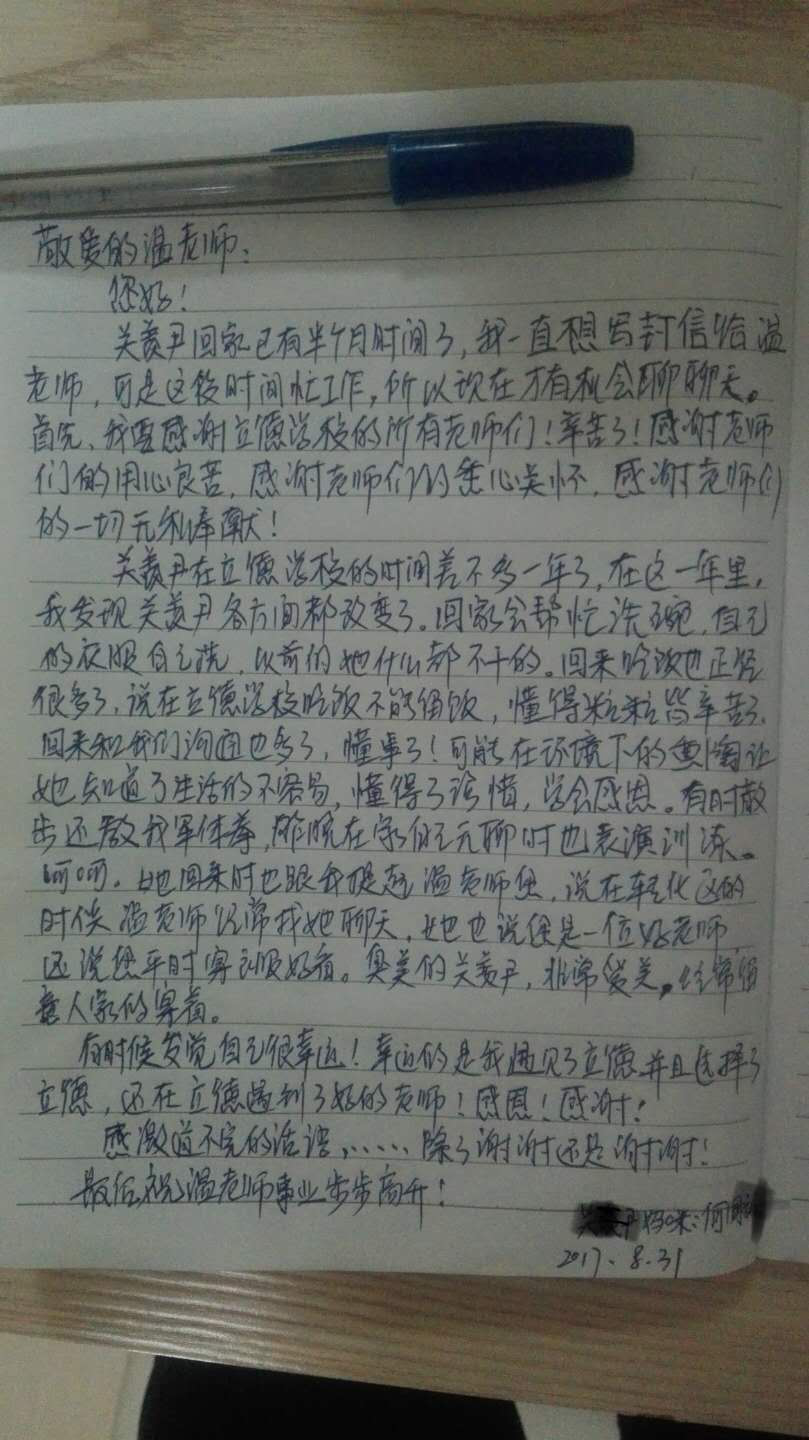 敬爱的温老师:
您好!
关羡尹回家已有半个月时间了,我一直想写封信给温
老师,可是这段时间忙工作,所以现在才有机会聊聊天。
首先、我要感谢立德学校的所有老师们!辛苦了!感谢老师
们的用心良苦,感谢老师们的悉心关怀,感谢老师们
的一切无私奉献!
关羡尹在立德学校的时间差不多一年了,在这一年里,
我发现关羡尹各方面都改变了。回家会帮忙洗碗,自己
的衣服自己洗,以前的她什么都不干的。回来吃饭也正经
很多了,说在立德学校吃饭不能留饭,懂得粒粒皆辛苦了,
回来和我们沟通也多了,懂事了!可能在环境下的熏陶让
她知道了生活的不容易,懂得了珍惜,学会感恩。有时散
步还教我军体拳,昨晚在家自己无聊时也表演训练。
呵呵。她回来时也跟我提起温老师您,说在转化区的
时候温老师经常找她聊天,她也说您是一位好老师,
还说您平时穿衣服好看。臭美的关羡尹,非常爱美。经常留
意人家的穿着。
有时候发觉自己很幸运!幸运的是我遇见了立德并且选择了
立德,还在立德遇到了好的老师!感恩!感谢!
感激道不完的话语,……除了谢谢还是谢谢!
最后祝温老师事业步步高升!
尹妈咪:何
2017.8.31